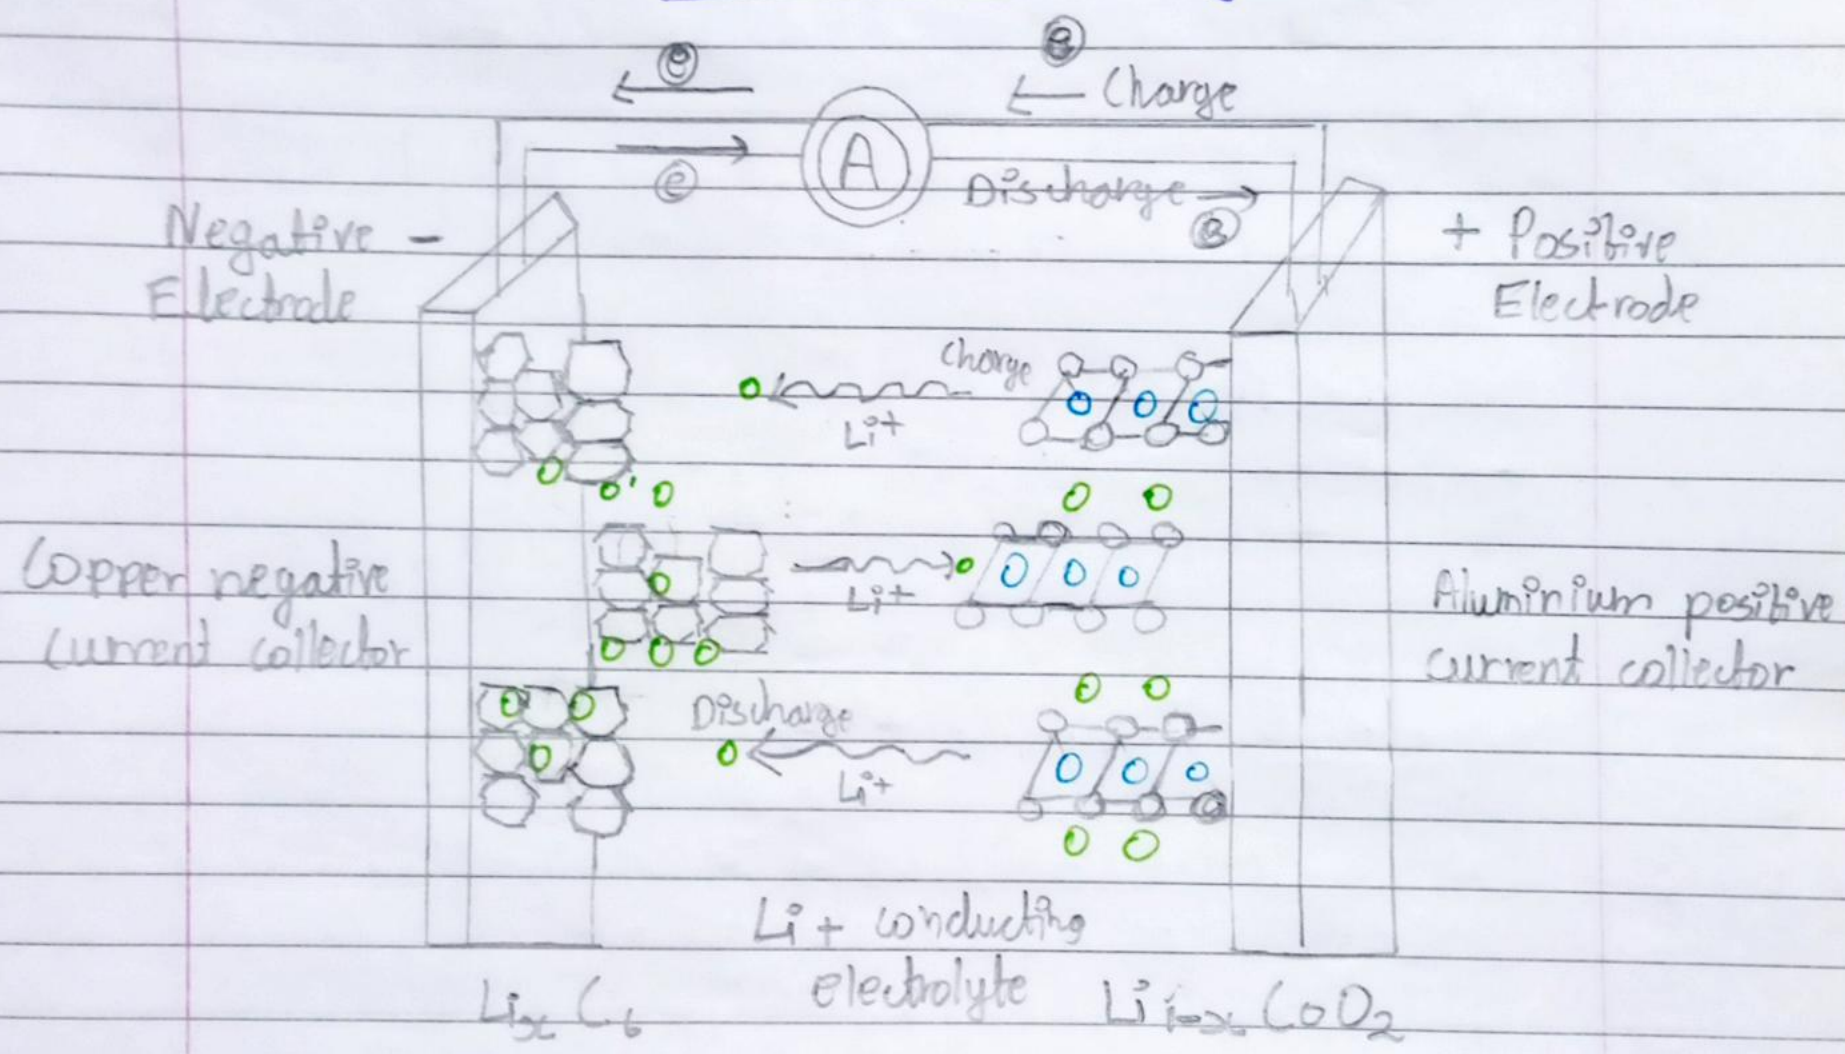 e
e
Charge
A
e
Discharge
e
Negative -
Electrode
+ Positive
Electrode
Charge
Li+
Copper negative
current collector
Li+
Aluminium positive
current collector
Discharge
Li+
Li+ conducting
electrolyte
LixC6
Li1-xCoO2